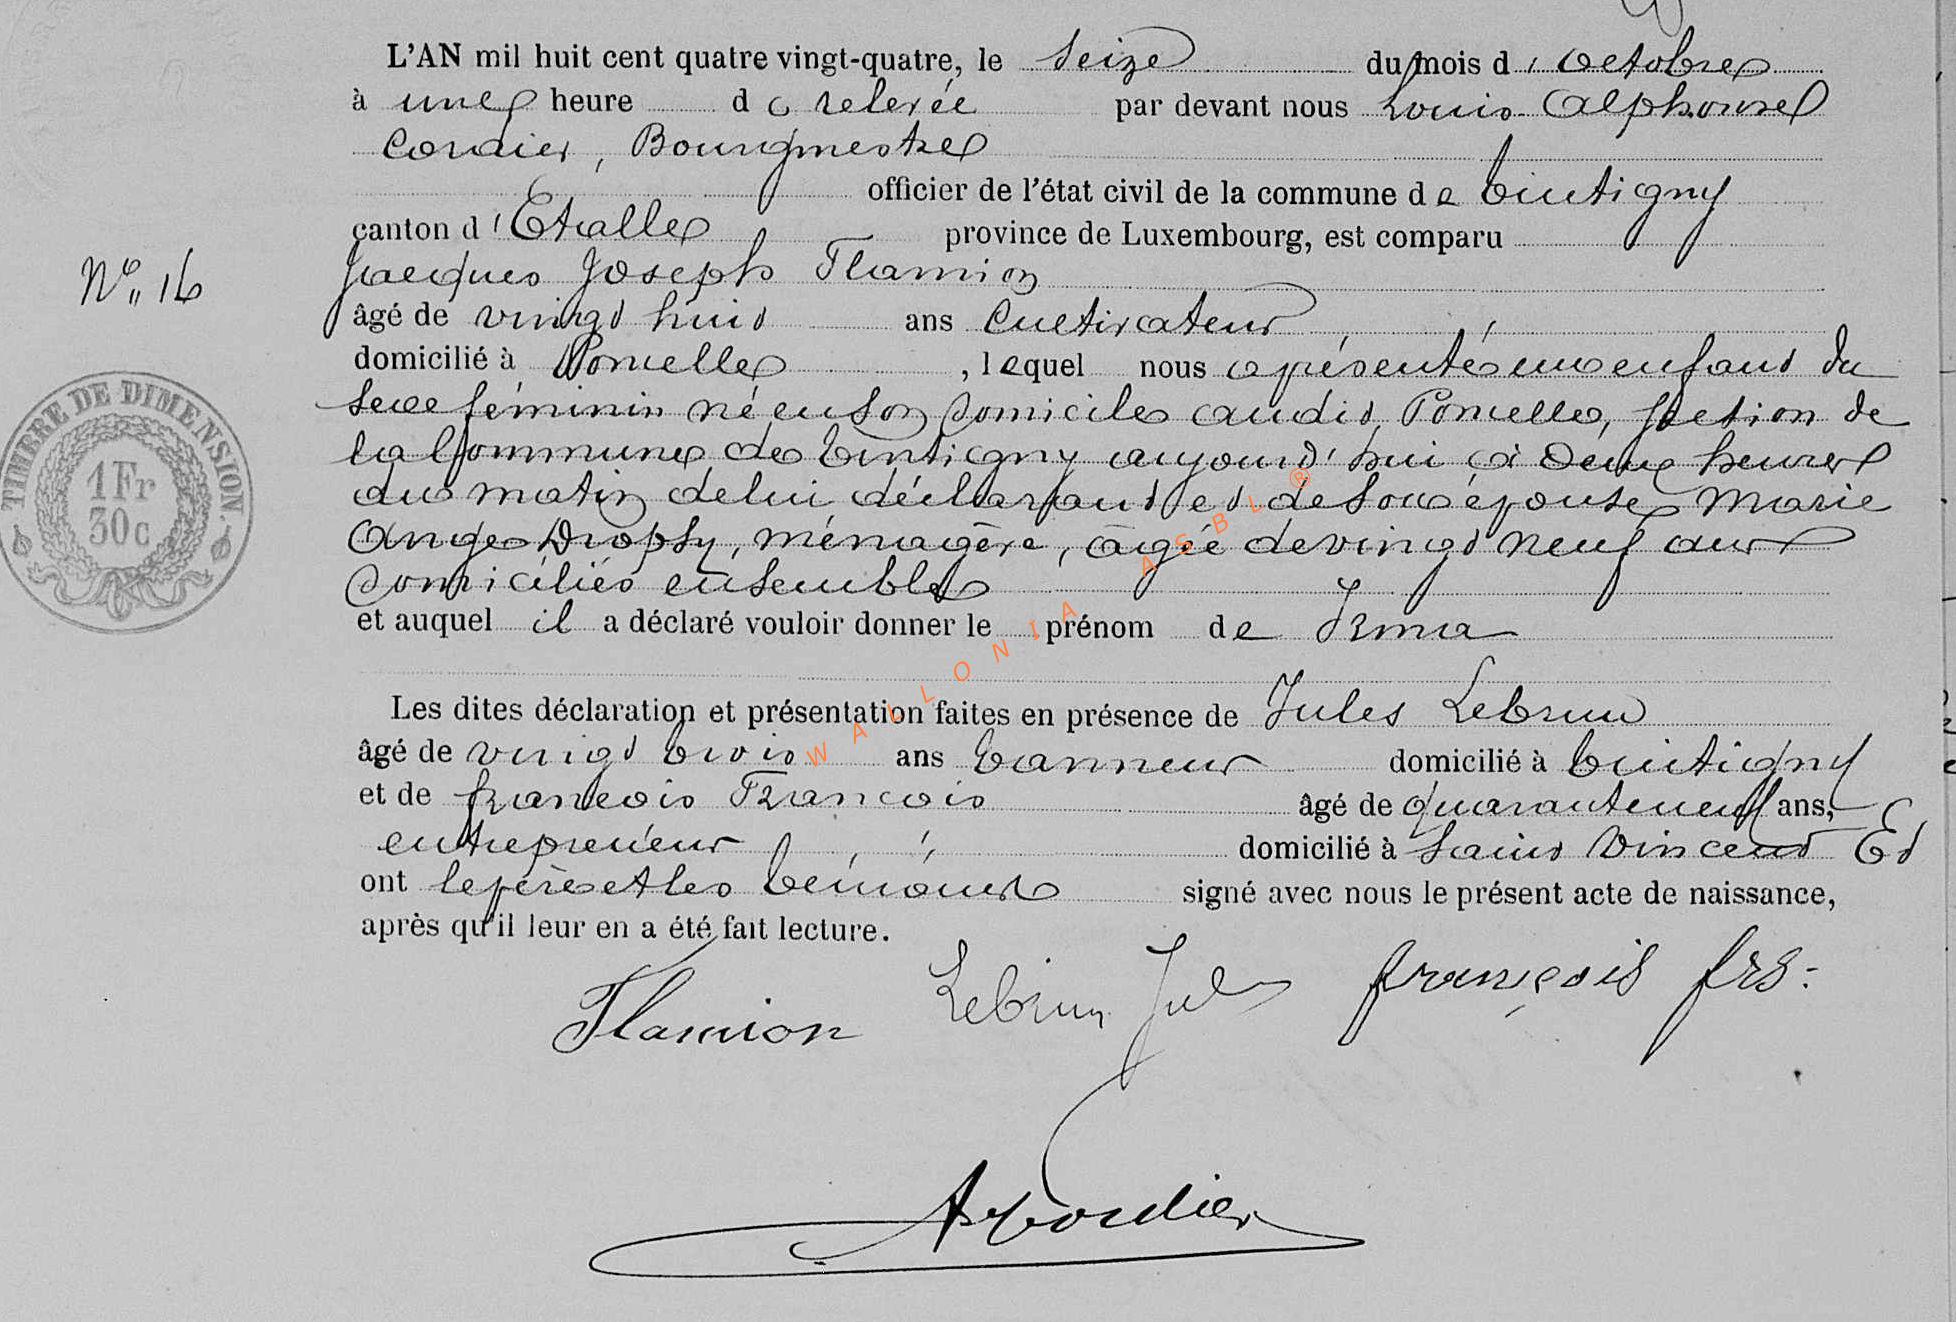 L'AN mil huit cent quatre vingt-quatre, le seize du mois d'Octobre
à une heure de relevée par devant nous Louis Alphonse
Cordier, Bourgmestre
officier de l'état civil de la commune de Tintigny
canton d'Etalle province de Luxembourg, est comparu
Jacques Joseph Flamion
N° 16
âgé de vingt huit ans Cultivateur
domicilié à Poncelle, lequel nous a présenté un enfant du
sexe féminin né en son domicile audit Poncelle, section de
la Commune de Tintigny aujourd'hui à deux heures
du matin de lui déclarant et de son épouse Marie
Ange Dropsy, ménagère, âgée de vingt neuf ans
domiciliés ensemble
et auquel il a déclaré vouloir donner le prénom de Irma
Les dites déclaration et présentation faites en présence de Jules Lebrun
âgé de vingt trois ans tanneur domicilié à Tintigny
et de françois François âgé de quarante neuf ans,
entrepreneur domicilié à Saint Vincent Et
ont le père et les témoins signé avec nous le présent acte de naissance,
après qu'il leur en a été fait lecture.
Flamion Lebrun Jules françois frs:
A Cordier
TIMBRE DE DIMENSION.
1 Fr
30c
WALLONIA ASBL ®